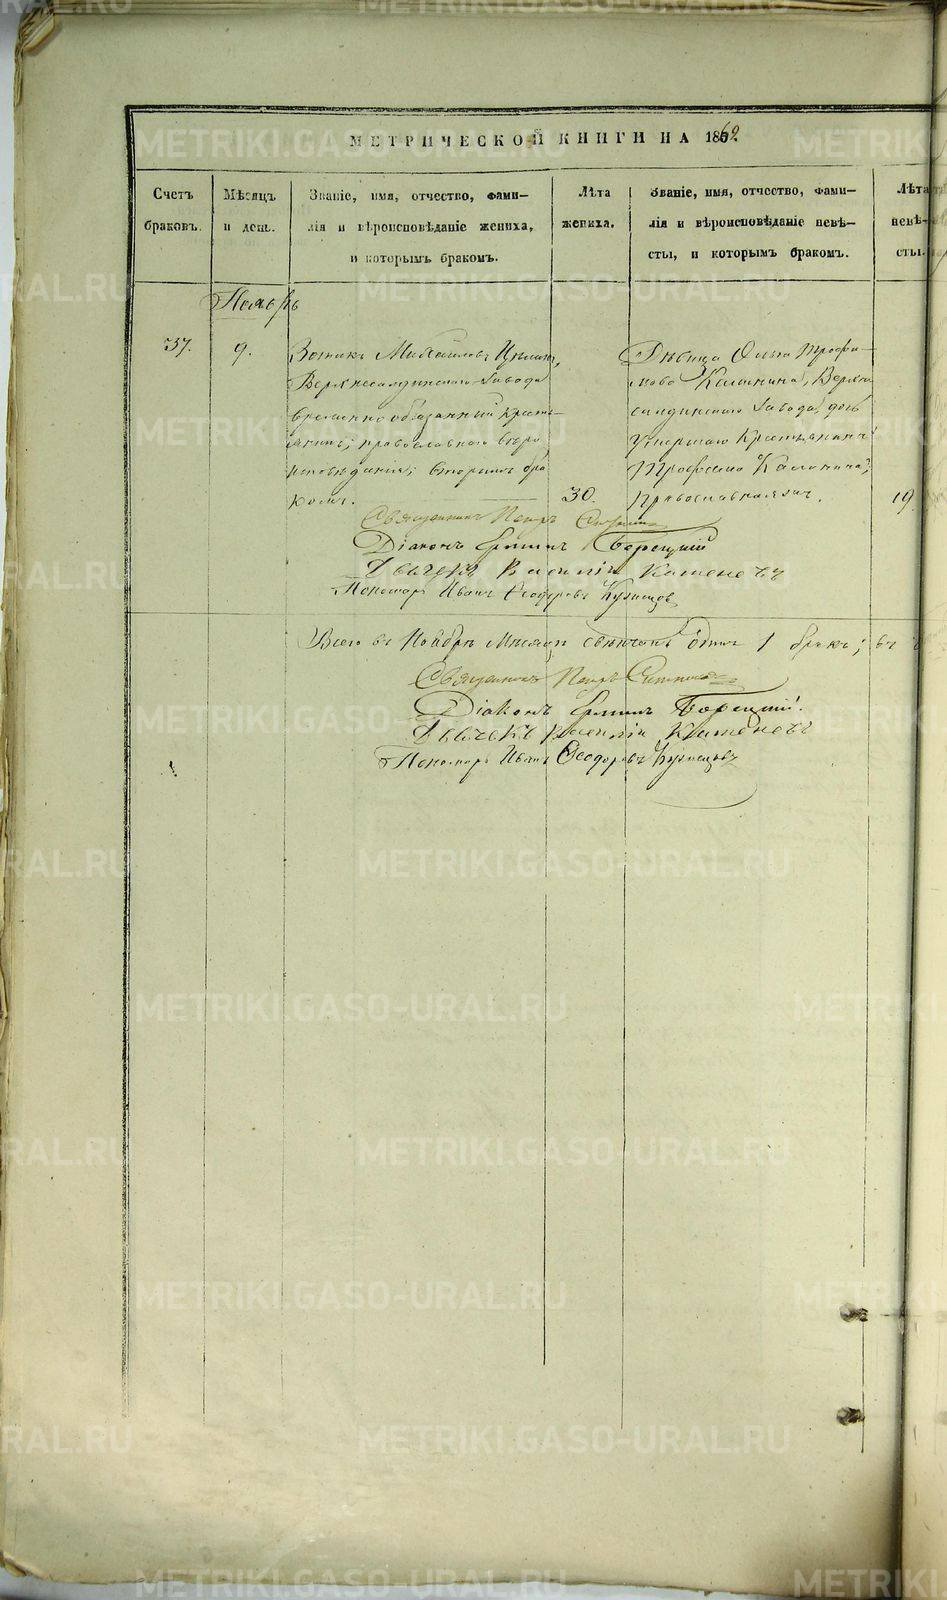 МЕТРИЧЕСКОЙ КНИГИ НА 1862.
Счетъ браковъ.
Мѣсяцъ и день.
Званіе, имя, отчество, фами-
лія и вѣроисповѣданіе жениха,
и которымъ бракомъ.
Лѣта
жениха.
Званіе, имя, отчество, фами-
лія и вѣроисповѣданіе невѣ-
сты, и которымъ бракомъ.
Лѣта
невѣ-
сты.
Ноябрь
37.
9.
Зотикъ Михаиловъ
Верхнесалдинскаго Завода
временно обязанный кресть-
янинъ, православнаго вѣро
исповѣданія; вторымъ бра
комъ.
30.
Дѣвица Ольга Трофи-
мова Калинина, Верхне
салдинскаго Завода, дочь
Умершаго Крестьянина
Трофима Калинина,
Православная
19.
Священникъ Петръ
Діаконъ Борецкій
Дьячекъ Василій Каменевъ
Пономарь Иванъ Феодоровъ Кузнецовъ
Всего въ Ноябрѣ Мѣсяцѣ 1 бракъ;
Священникъ Петръ
Діаконъ Борецкій.
Дьячекъ Василій Каменевъ
Пономарь Иванъ Феодоровъ Кузнецовъ
METRIKI.GASO-URAL.RU